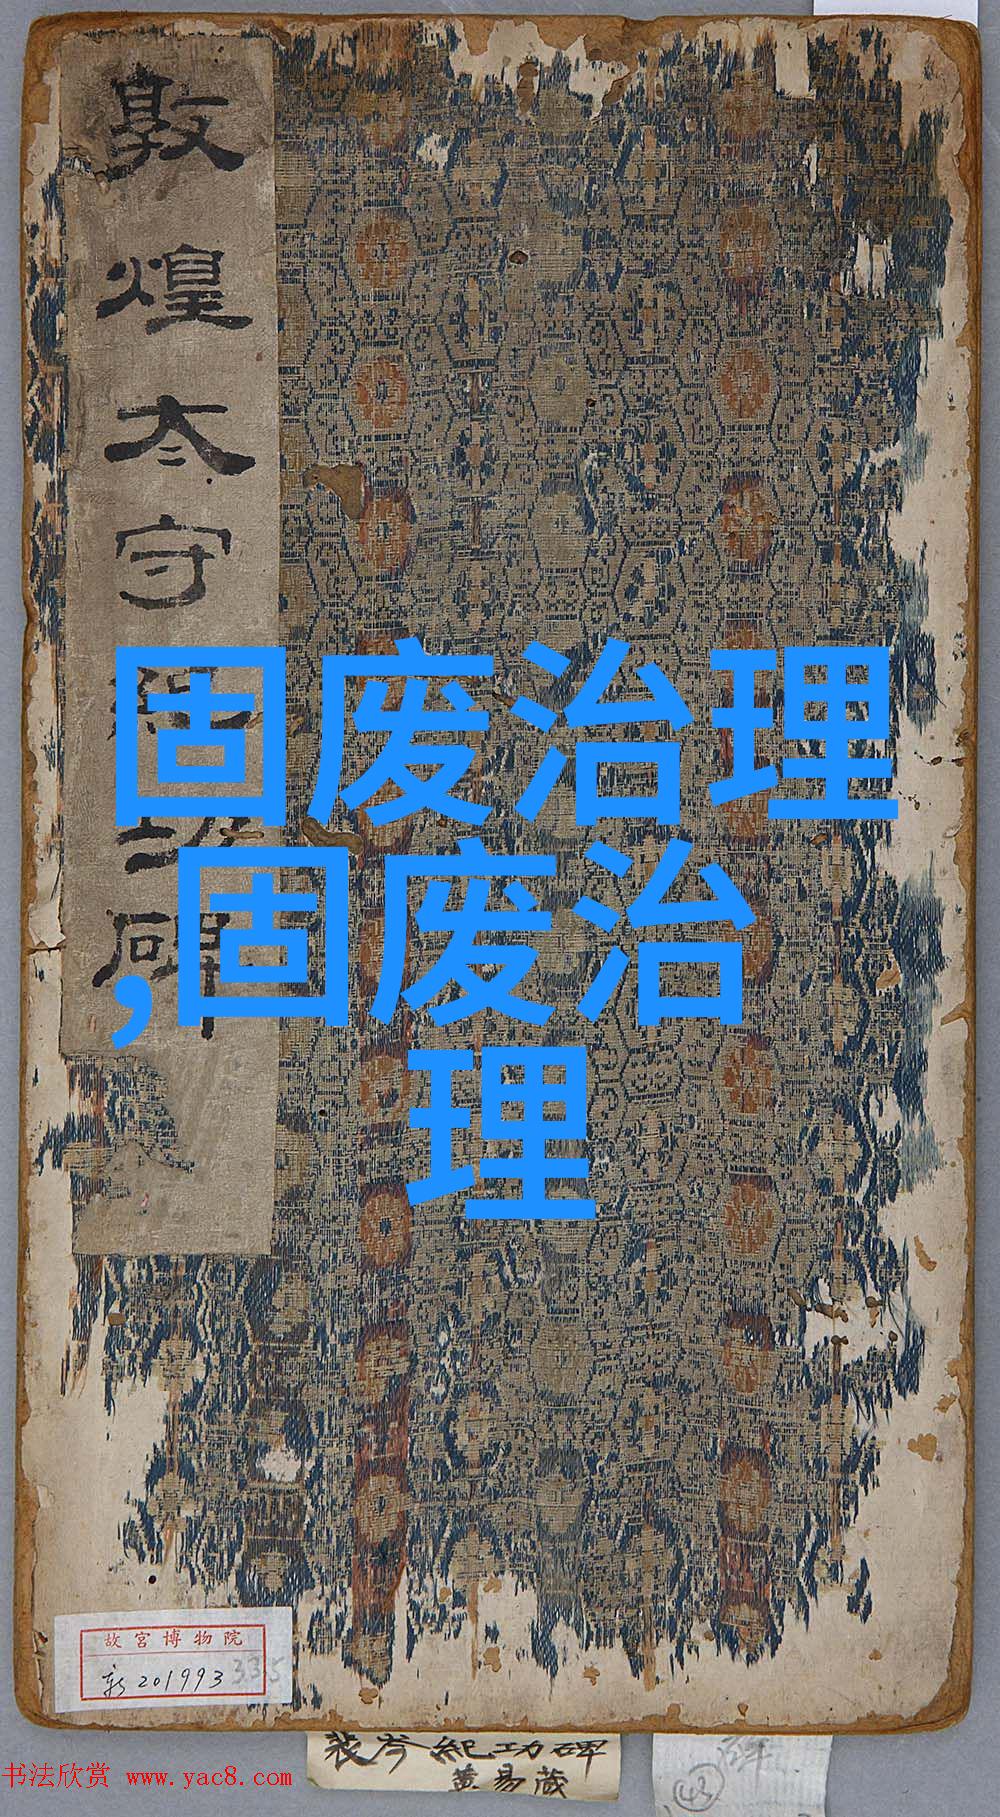 敦煌太守
碑
固废治理
,固废治
理
故宫博物院
新201993
335
裴岑紀功碑
黄易藏
(43)
书法欣赏 www.yac8.com